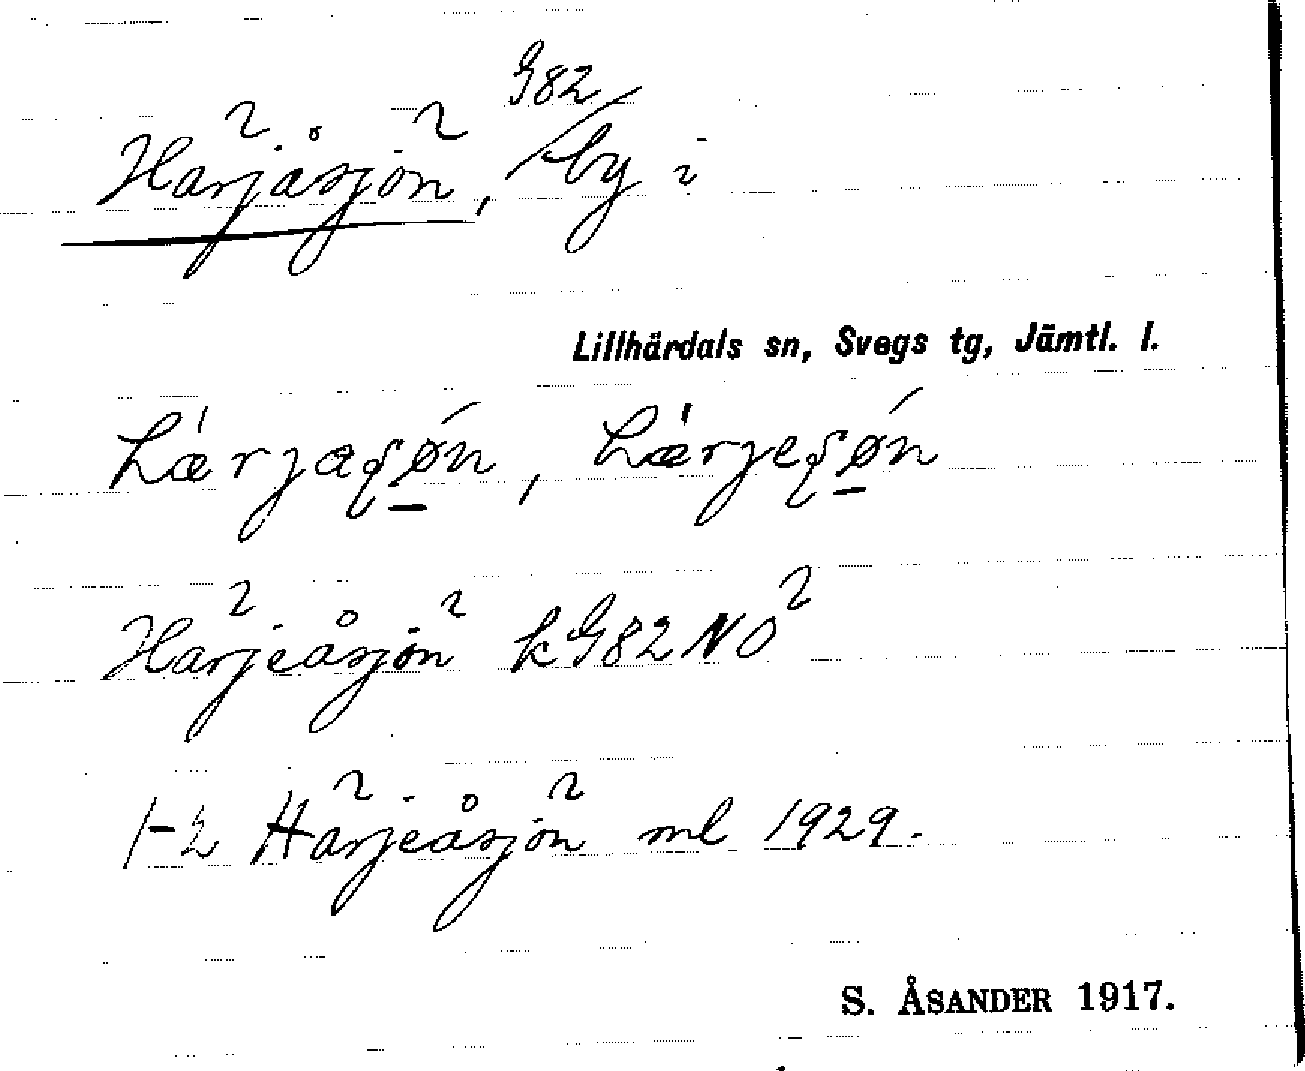 G82
Härjåsjön, by i
Lillhärdals sn, Svegs tg, Jämtl. l.
hærjaʂøn, hærjeʂøn
Härjeåsjön kG82NO²
1-2 Härjeåsjön ml 1929.
S. ÅSANDER 1917.